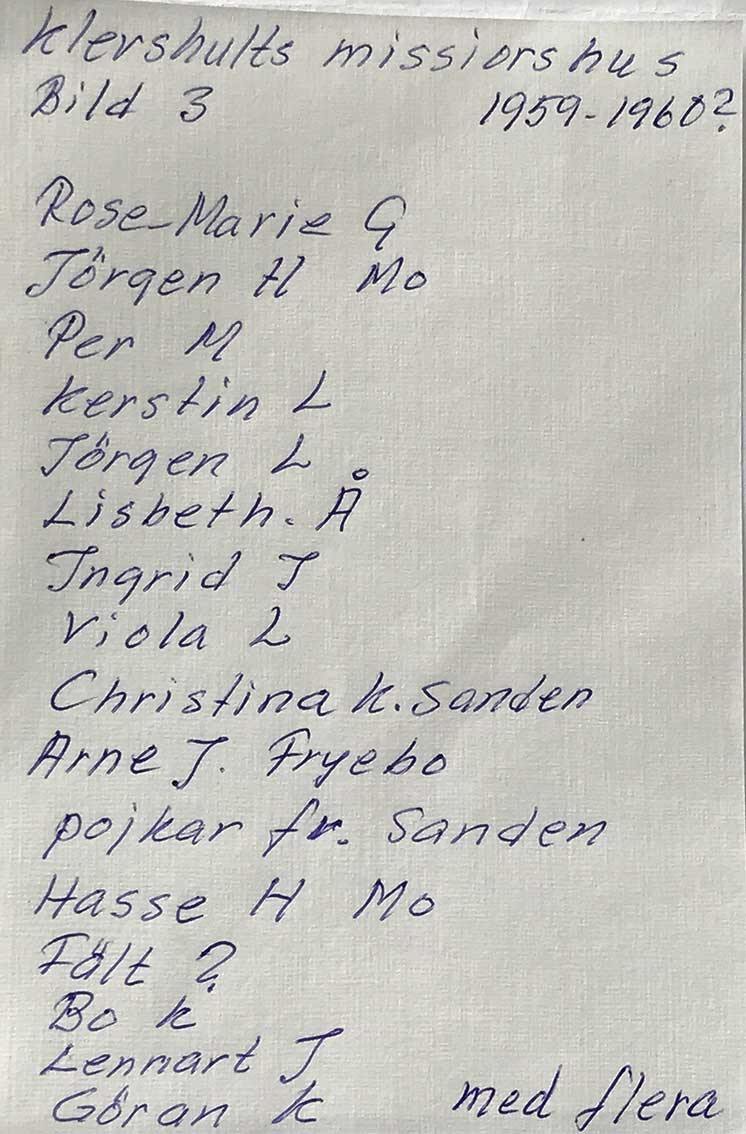 Klershults missionshus
Bild 3 1959-1960?
Rose-Marie G
Jörgen H Mo
Per M
Kerstin L
Jörgen L
Lisbeth. Å
Ingrid J
Viola L
Christina K. Sanden
Arne J. Fryebo
pojkar fr. Sanden
Hasse H Mo
Fält ?
Bo K
Lennart J
Göran K med flera